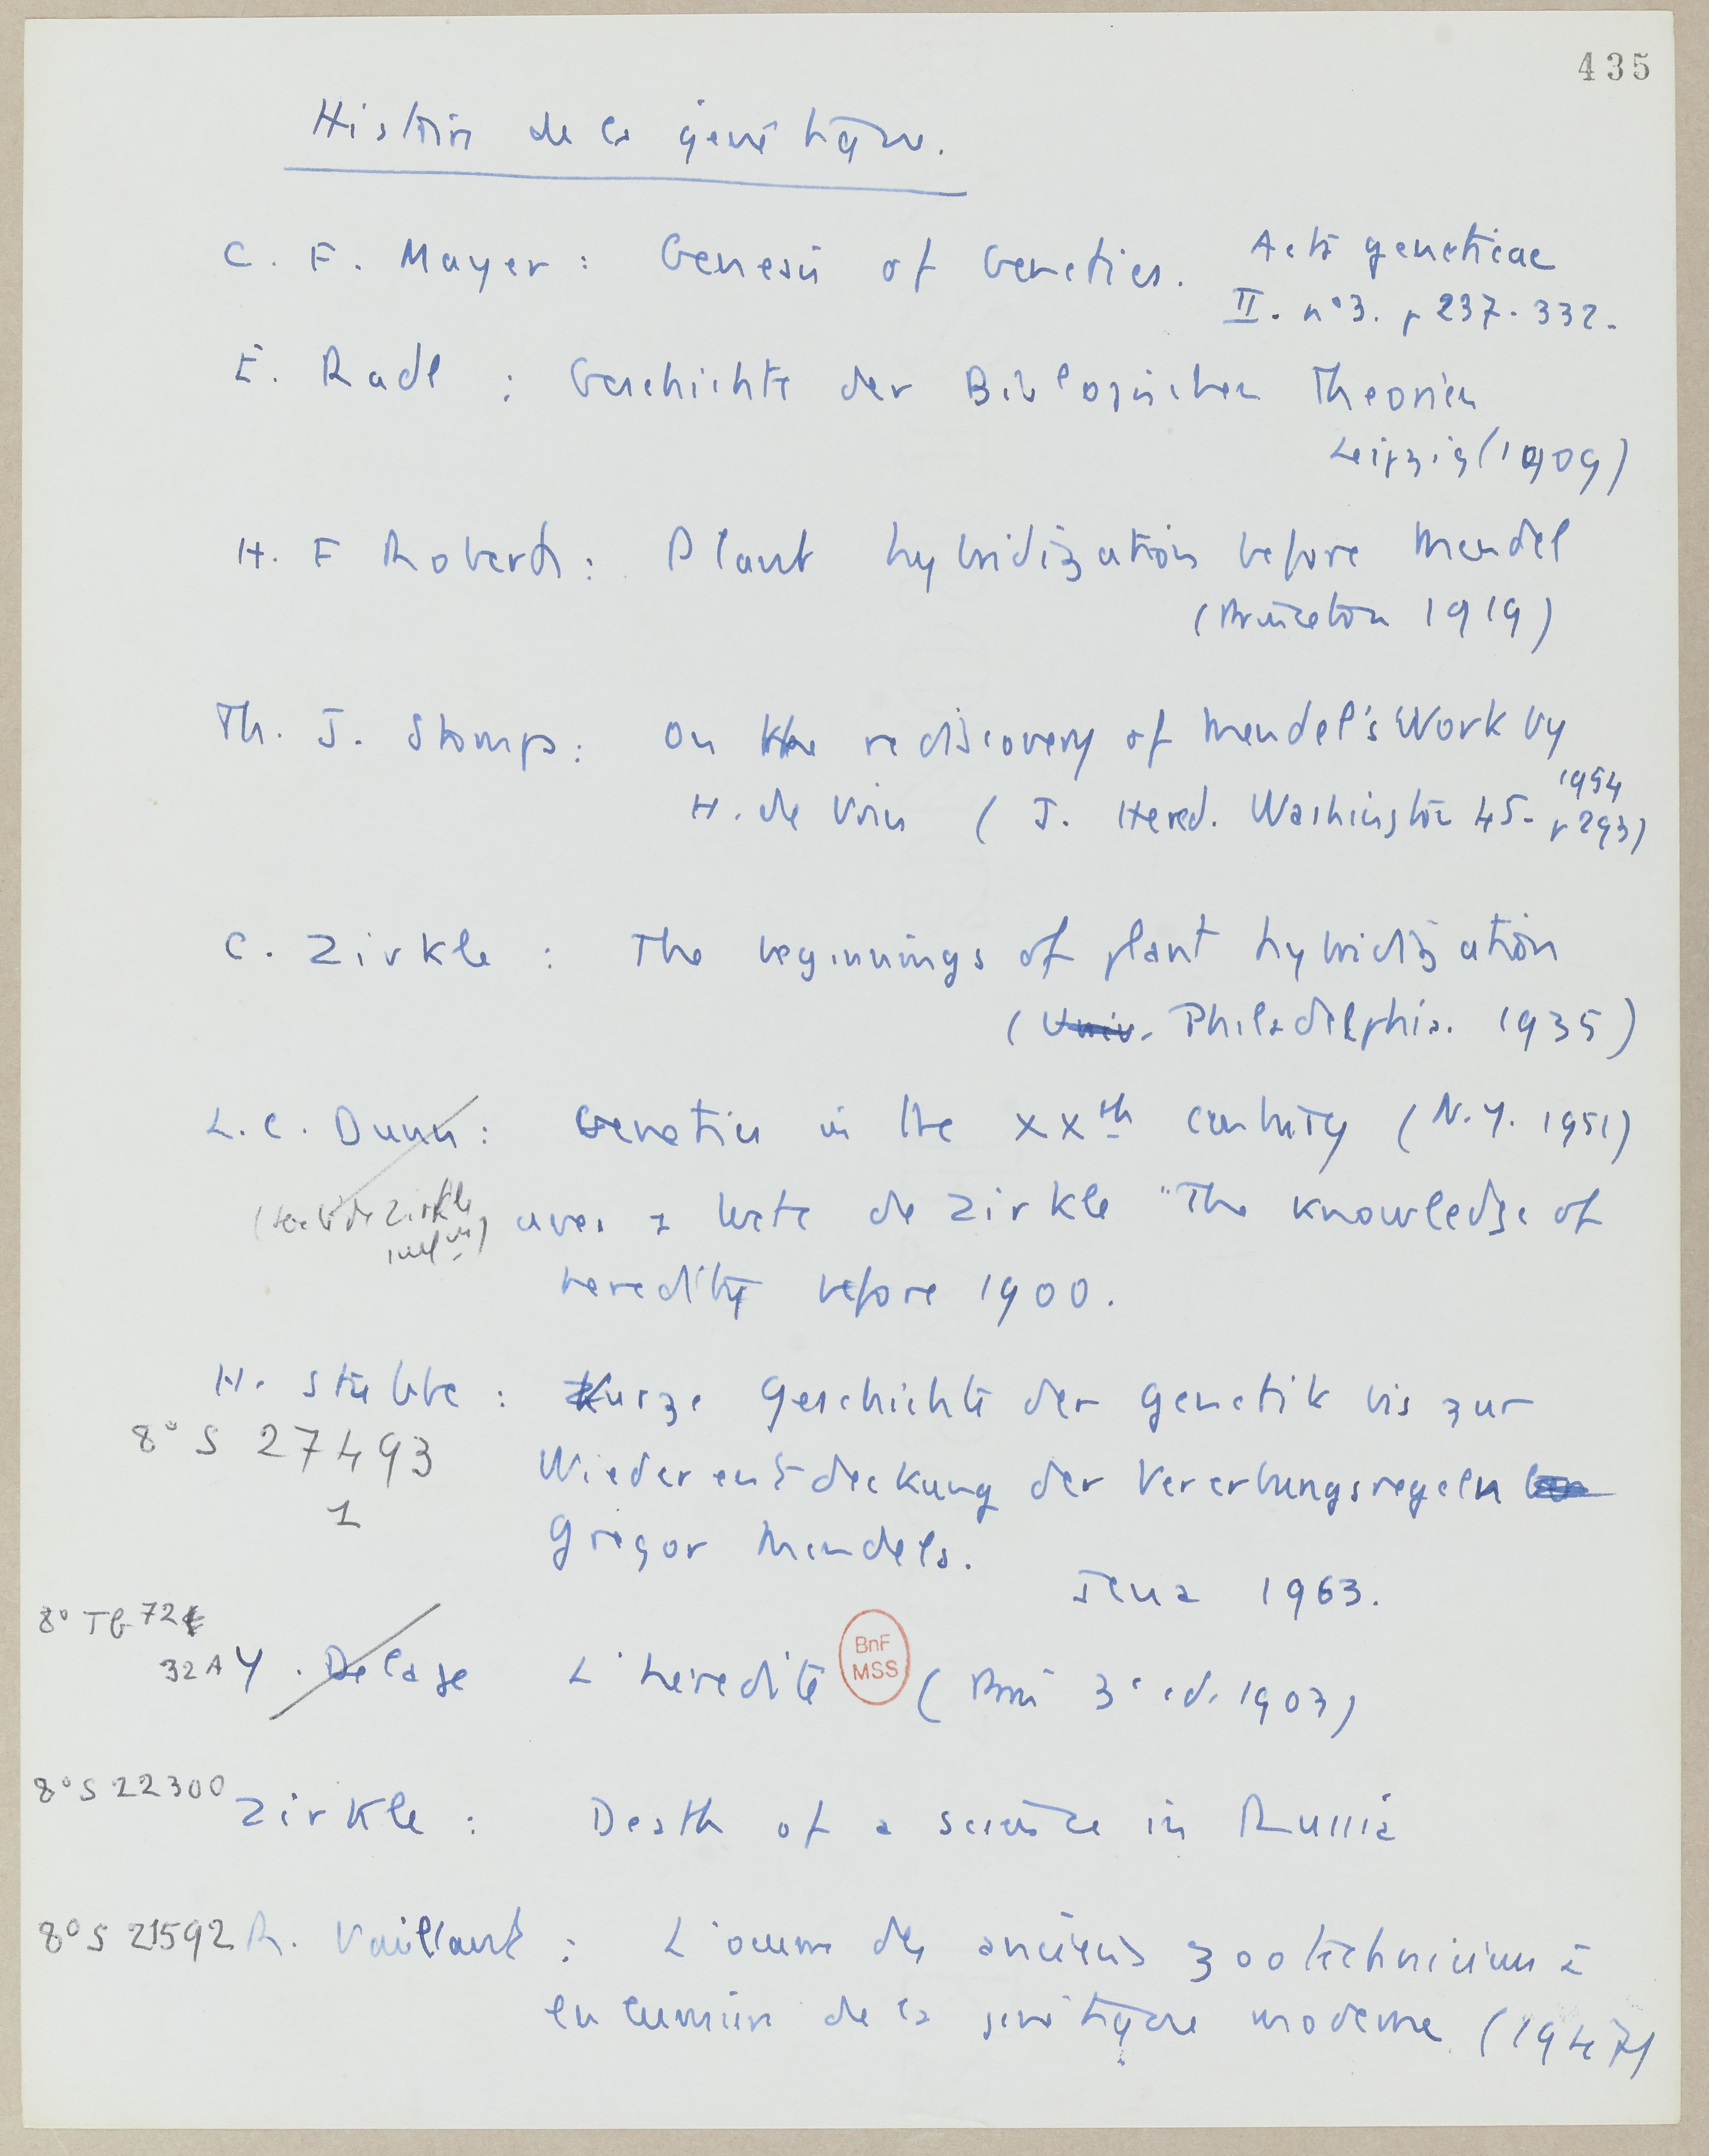 435
Histoire de la génétique.
C. F. Mayer : Genesis of Genetics. Acta geneticae
II. n°3. p 237. 332.
E. Radl : Geschichte der Biologischen Theorien
Leipzig (1909)
H. F Roberts : Plant hybridization before Mendel
(Princeton 1919)
Th. J. Stomps : On the rediscovery of Mendel's Work by
H. de Vries ( J. Hered. Washington 45. 1954 p 293)
C. Zirkle : The beginnings of plant hybridization
(Univ. Philadelphia. 1935)
L. C. Dunn : Genetics in the XXth century (N.Y. 1951)
(texte de Zirkle
avec texte de Zirkle "The knowledge of
heredity before 1900.
H. Stubbe : Kurze Geschichte der Genetik bis zur
8° S 27493
Wiederentdeckung der Vererbungsregeln
1
Gregor Mendels.
Jena 1963.
8° Tb 72
32 A Y. Delage L'hérédité (Paris 3e ed. 1903)
BnF
MSS
8° S 22300 Zirkle : Death of a science in Russia
8° S 21592 R. Vaillant : L'oeuvre des anciens zootechniciens à
la lumière de la génétique moderne (1947)